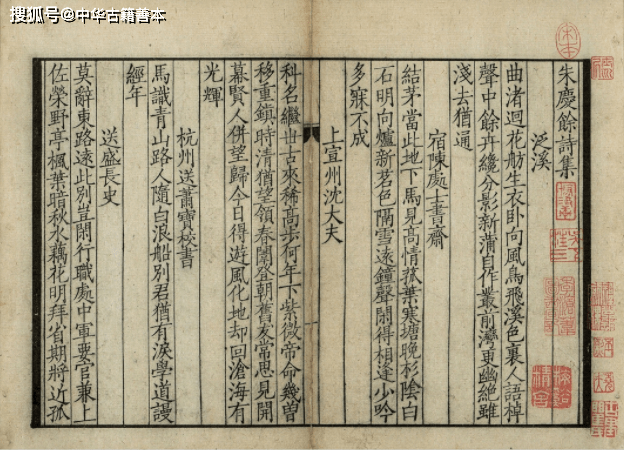 搜狐号@中华古籍善本
宋本
朱慶餘詩集
泛溪
曲渚迴花舫生衣卧向風鳥飛溪色裏人語棹
聲中餘卉纔分影新蒲自作叢前灣更幽絕雖
淺去猶通
宿陳處士書齋
結茅當此地下馬見高情菰葉寒塘晚杉陰白
石明向爐新茗色隔雪遠鐘聲閑得相逢少吟
多寐不成
上宣州沈大夫
科名繼世古來稀高步何年下紫微帝命幾曾
移重鎮時清猶望領春闈登朝舊友常思見開
幕賢人併望歸今日得遊風化地却回滄海有
光輝
杭州送蕭寶校書
馬識青山路人隨白浪船別君猶有淚學道謾
經年
送盛長史
莫辭東路遠此別豈閑行職處中軍要官兼上
佐榮野亭楓葉暗秋水藕花明拜省期將近孤